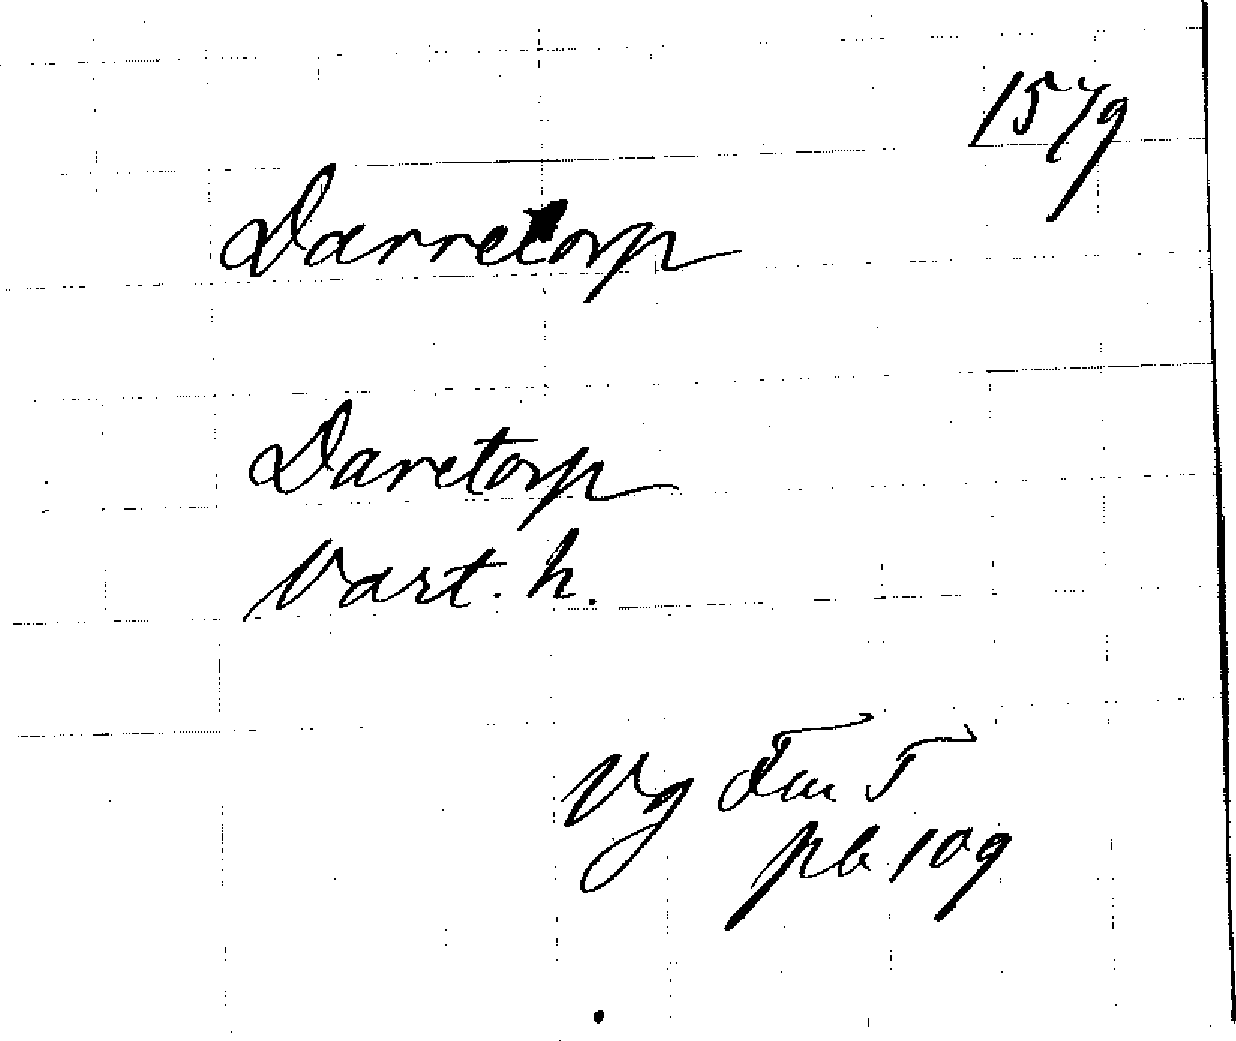 1579
Darretorp
Daretorp
Vart. h.
Vg
pb 109